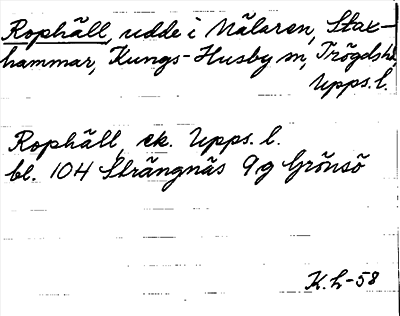 Rophäll, udde i Mälaren, Stax-
hammar, Kungs-Husby sn, Trögds hd,
Upps. l.
Rophäll, ek. Upps. l.
bl. 104 Strängnäs 9g Grönsö
K.L-58